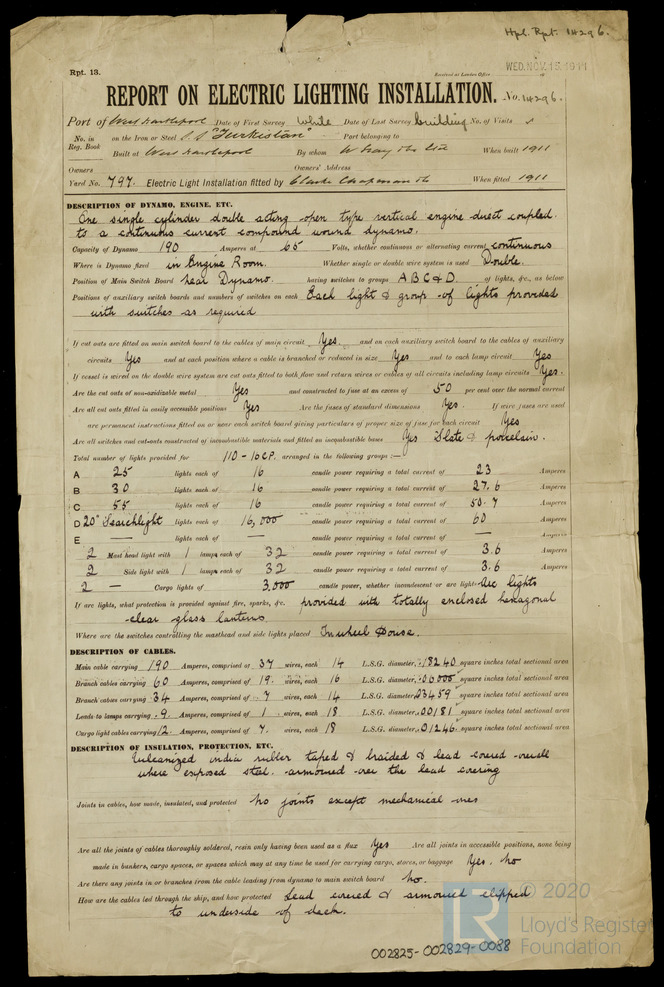 Hpl. Rpt. 14296.
Rpt. 13.
Received at London Office
WED. NOV. 15. 1911
REPORT ON ELECTRIC LIGHTING INSTALLATION. No. 14296.
Port of West Hartlepool Date of First Survey While Date of Last Survey building No. of Visits
No. in Reg. Book on the Iron or Steel S.S. "Turkistan" Port belonging to
Built at West Hartlepool By whom W Gray & Co Ltd When built 1911
Owners Owners' Address
Yard No. 797. Electric Light Installation fitted by Clarke Chapman & Co When fitted 1911
DESCRIPTION OF DYNAMO, ENGINE, ETC.
One single cylinder double acting open type vertical engine direct coupled
to a continuous current compound wound dynamo.
Capacity of Dynamo 190 Amperes at 65 Volts, whether continuous or alternating current continuous
Where is Dynamo fixed in Engine Room. Whether single or double wire system is used Double.
Position of Main Switch Board near Dynamo. having switches to groups A B C & D of lights, &c., as below
Positions of auxiliary switch boards and numbers of switches on each Each light & group of lights provided
with switches as required
If cut outs are fitted on main switch board to the cables of main circuit Yes. and on each auxiliary switch board to the cables of auxiliary
circuits Yes and at each position where a cable is branched or reduced in size Yes and to each lamp circuit Yes
If vessel is wired on the double wire system are cut outs fitted to both flow and return wires or cables of all circuits including lamp circuits Yes.
Are the cut outs of non-oxidizable metal Yes and constructed to fuse at an excess of 50 per cent over the normal current
Are all cut outs fitted in easily accessible positions Yes Are the fuses of standard dimensions Yes. If wire fuses are used
are permanent instructions fitted on or near each switch board giving particulars of proper size of fuse for each circuit Yes
Are all switches and cut-outs constructed of incombustible materials and fitted on incombustible bases Yes Slate & porcelain.
Total number of lights provided for 110 - 16 CP. arranged in the following groups :—
A 25 lights each of 16 candle power requiring a total current of 23 Amperes
B 30 lights each of 16 candle power requiring a total current of 27.6 Amperes
C 55 lights each of 16 candle power requiring a total current of 50.7 Amperes
D 20" Searchlight lights each of 16,000 candle power requiring a total current of 60 Amperes
E — lights each of — candle power requiring a total current of — Amperes
2 Mast head light with 1 lamps each of 32 candle power requiring a total current of 3.6 Amperes
2 Side light with 1 lamps each of 32 candle power requiring a total current of 3.6 Amperes
2 — Cargo lights of 3,000 candle power, whether incandescent or arc lights Arc lights
If arc lights, what protection is provided against fire, sparks, &c. provided with totally enclosed hexagonal
clear glass lanterns
Where are the switches controlling the masthead and side lights placed In wheel House.
DESCRIPTION OF CABLES.
Main cable carrying 190 Amperes, comprised of 37 wires, each 14 L.S.G. diameter, .18240 square inches total sectional area
Branch cables carrying 60 Amperes, comprised of 19 wires, each 16 L.S.G. diameter, .06000 square inches total sectional area
Branch cables carrying 34 Amperes, comprised of 7 wires, each 14 L.S.G. diameter, .03459 square inches total sectional area
Leads to lamps carrying .9 Amperes, comprised of 1 wires, each 18 L.S.G. diameter, .00181 square inches total sectional area
Cargo light cables carrying 12 Amperes, comprised of 7 wires, each 18 L.S.G. diameter, .01246 square inches total sectional area
DESCRIPTION OF INSULATION, PROTECTION, ETC.
Vulcanized india rubber taped & braided & lead covered overall
where exposed steel armoured over the lead covering
Joints in cables, how made, insulated, and protected no joints except mechanical ones
Are all the joints of cables thoroughly soldered, resin only having been used as a flux Yes Are all joints in accessible positions, none being
made in bunkers, cargo spaces, or spaces which may at any time be used for carrying cargo, stores, or baggage Yes. No
Are there any joints in or branches from the cable leading from dynamo to main switch board No.
How are the cables led through the ship, and how protected Lead covered & armoured clipped
to underside of deck.
© 2020
LR Lloyd's Register
Foundation
002825-002829-0088